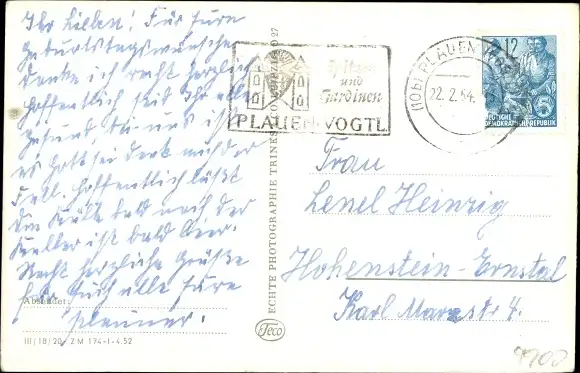 Ihr Lieben! Für Eure
Geburtstagswünsche
danke ich recht herzlich
hoffentlich seid Ihr alle
gesund, bei uns ist
es Gott sei Dank auch der
Fall. Hoffentlich läßt
die Kälte bald nach, der
Keller ist bald leer.
Recht herzliche Grüße
für Euch alle Eure
Plauner.
Absender:
III/18/20-Z M 174-I-4.52
ECHTE PHOTOGRAPHIE TRINKS LEIPZIG O 27
Teco
Spitzen
und
Gardinen
PLAUEN VOGTL
PLAUEN (Vogtl)
22.2.54.
12
5
DEUTSCHE
DEMOKRATISCHE REPUBLIK
Frau
Lenel Heinzig
Hohenstein-Ernstal
Karl Marxstr 4.